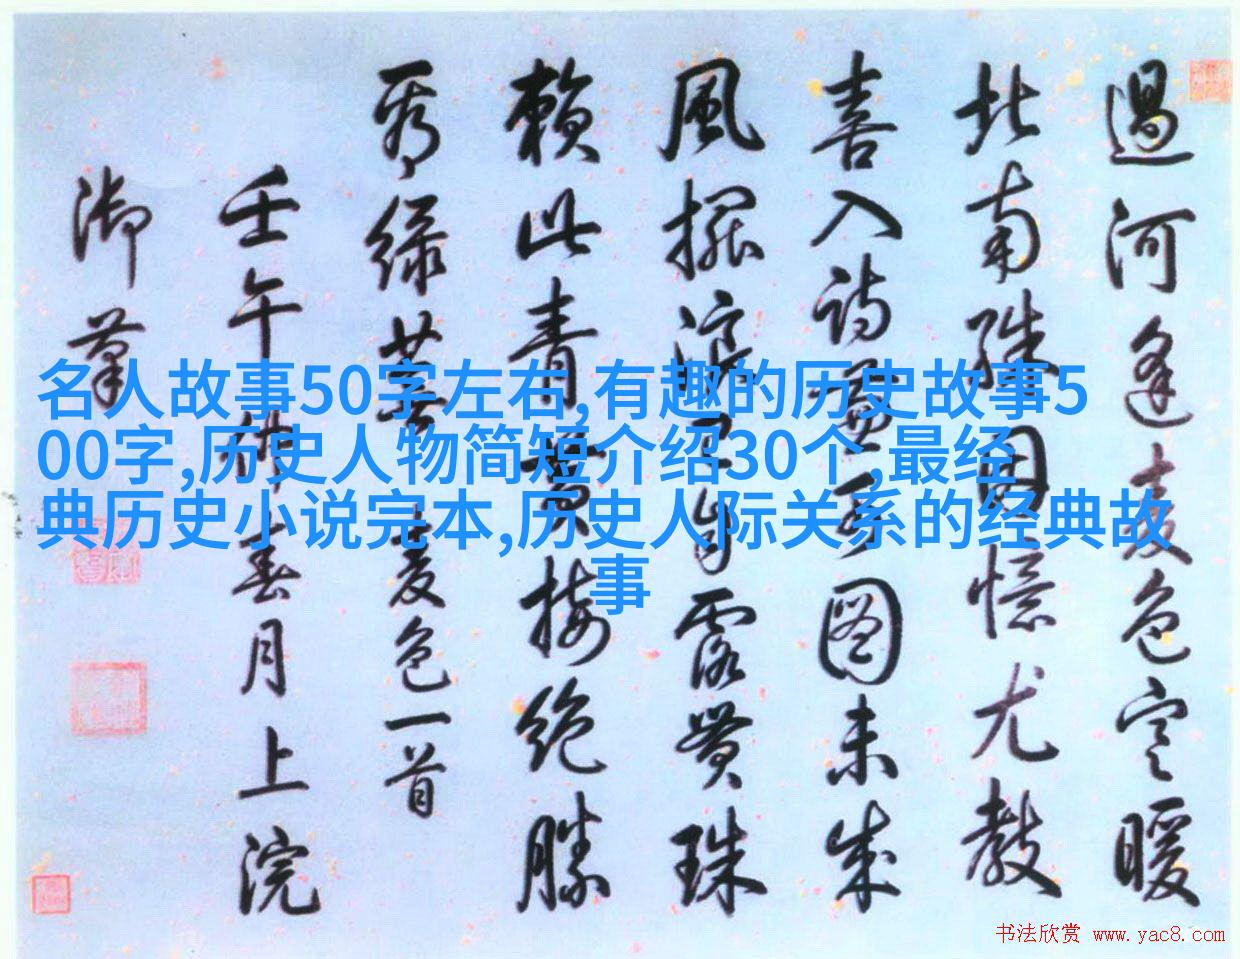 過河逢麦色寒暖
北南殊因憶尤教
喜入詩還可圖未成
風擺浪早自露貫珠
賴此青黃接絕勝
秀綠蕪 麦色一首
壬午仲春月上浣
御筆
名人故事50字左右,有趣的历史故事5
00字,历史人物简短介绍30个,最经
典历史小说完本,历史人际关系的经典故
事
书法欣赏 www.yac8.com